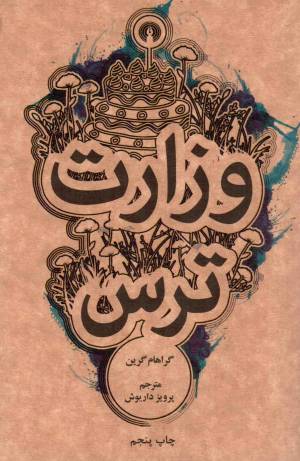 وزارت
ترس
گراهام گرین
مترجم
پرویز داریوش
چاپ پنجم